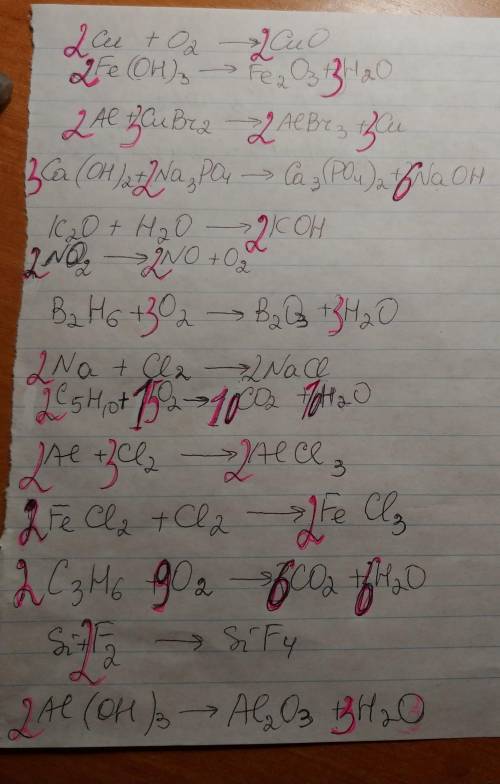 2Cu + O2 → 2CuO
2Fe(OH)3 → Fe2O3 + 3H2O
2Al + 3CuBr2 → 2AlBr3 + 3Cu
3Ca(OH)2 + 2Na3PO4 → Ca3(PO4)2 + 6NaOH
K2O + H2O → 2KOH
2NO2 → 2NO + O2
B2H6 + 3O2 → B2O3 + 3H2O
2Na + Cl2 → 2NaCl
2C5H10 + 15O2 → 10CO2 + 10H2O
2Al + 3Cl2 → 2AlCl3
2FeCl2 + Cl2 → 2FeCl3
2C3H6 + 9O2 → 6CO2 + 6H2O
Si + 2F2 → SiF4
2Al(OH)3 → Al2O3 + 3H2O